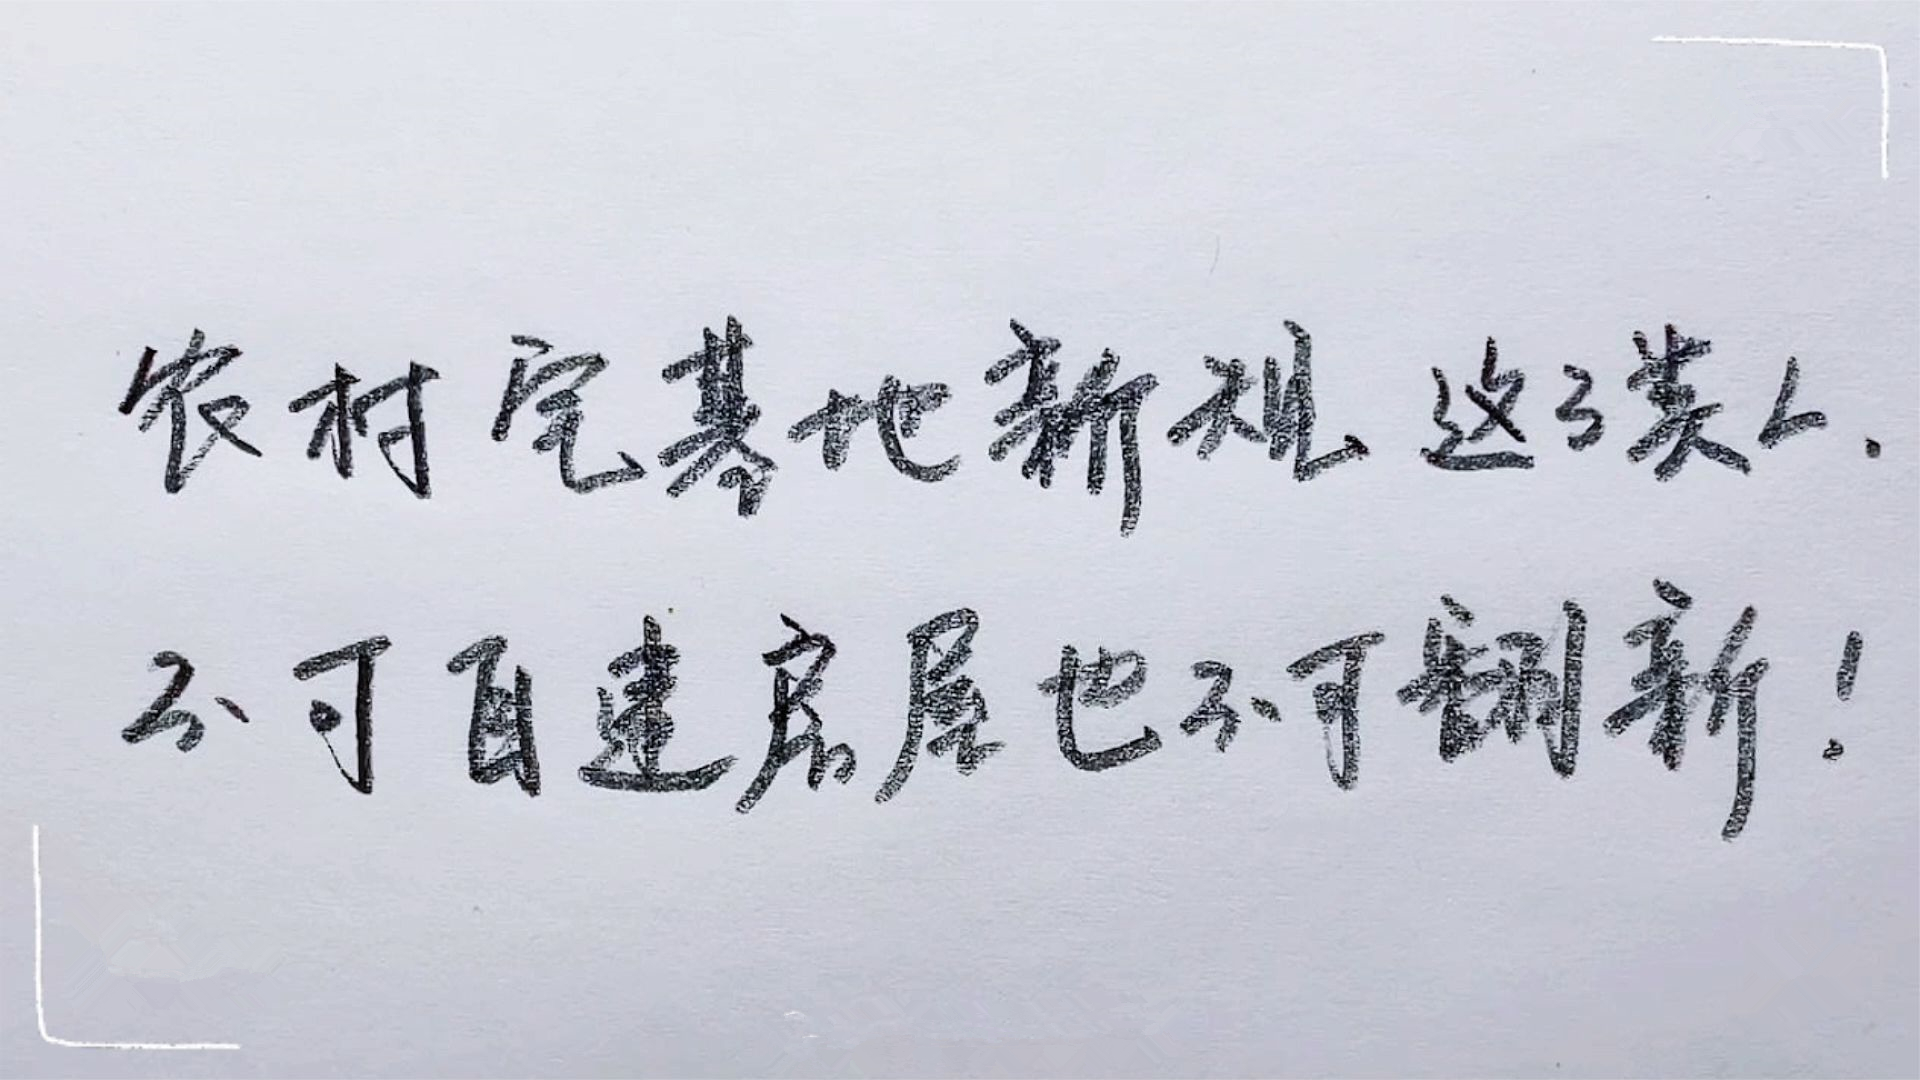 农村宅基地新规 这3类人.
不可自建房屋也不可翻新!